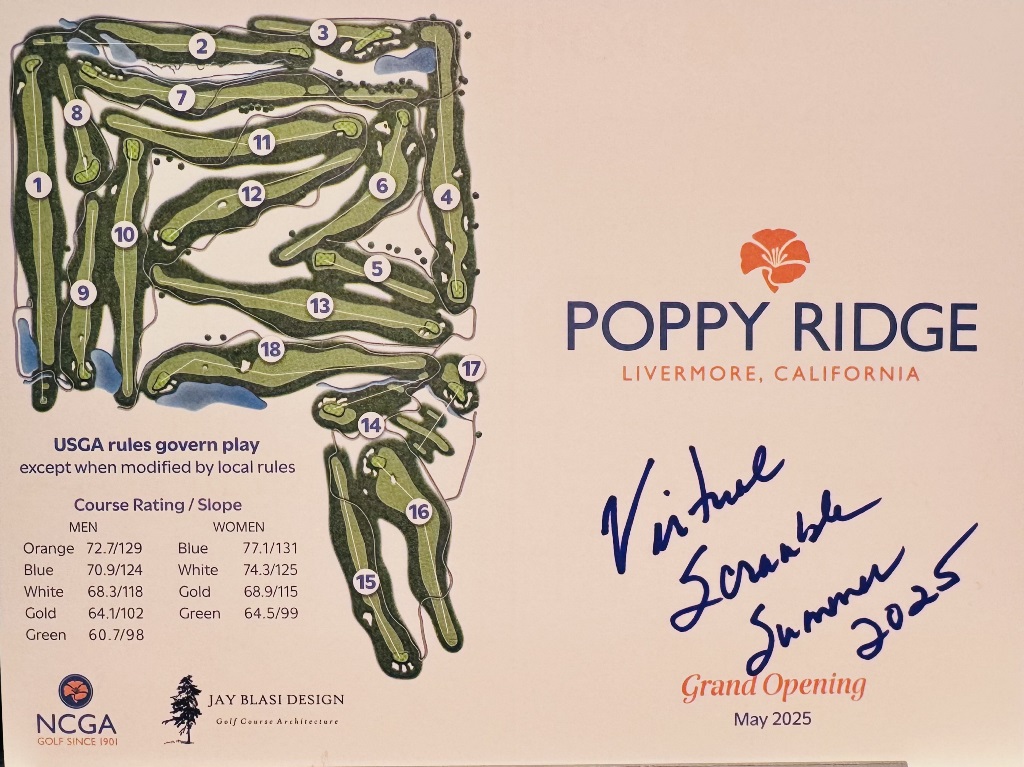 3
2
7
8
11
1
6
12
4
10
5
9
13
18
17
14
16
15
USGA rules govern play
except when modified by local rules
Course Rating / Slope
MEN WOMEN
Orange 72.7/129 Blue 77.1/131
Blue 70.9/124 White 74.3/125
White 68.3/118 Gold 68.9/115
Gold 64.1/102 Green 64.5/99
Green 60.7/98
NCGA
GOLF SINCE 1901
JAY BLASI DESIGN
Golf Course Architecture
POPPY RIDGE
LIVERMORE, CALIFORNIA
Virtual
Scramble
Summer
2025
Grand Opening
May 2025